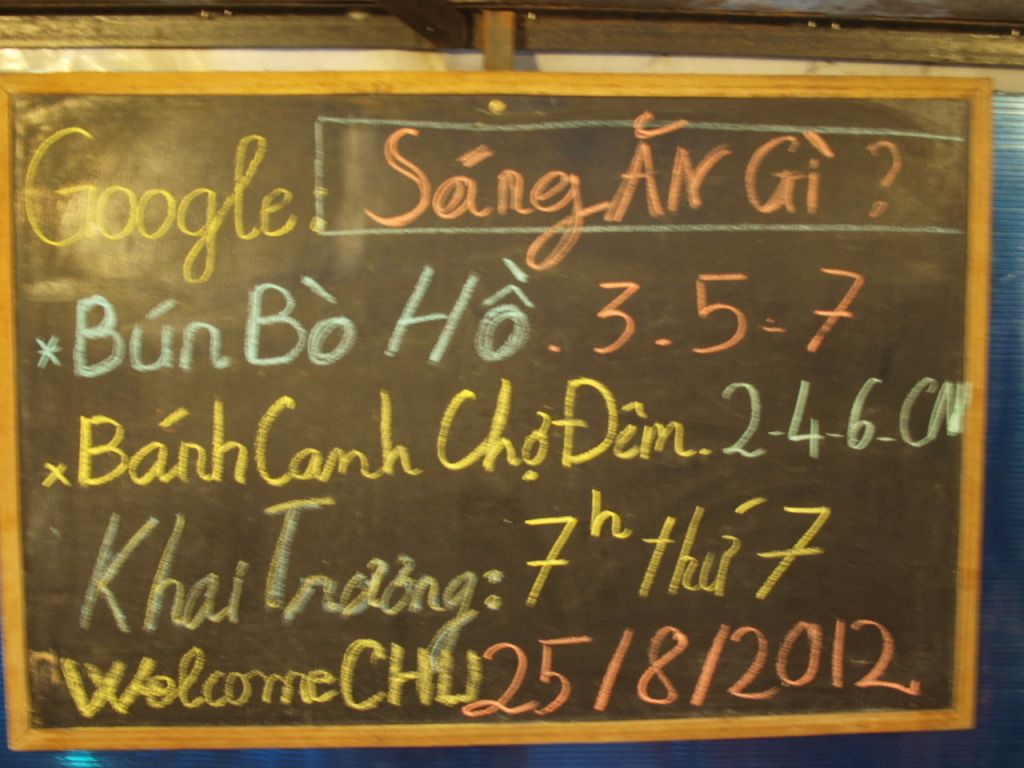 Google: Sáng ĂN Gì ?
* Bún Bò Hồ. 3.5-7
x Bánh Canh Chợ Đêm. 2-4-6-CN
Khai Trương: 7h thứ 7
Welcome CHU 25/8/2012